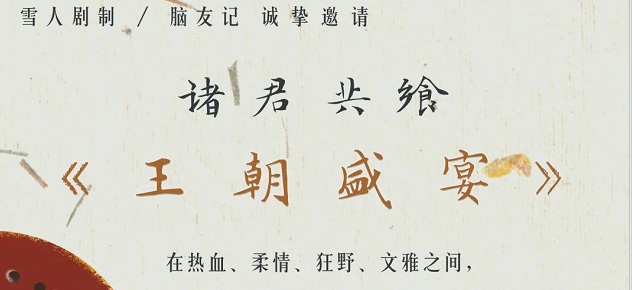 雪人剧制 / 脑友记 诚挚邀请
诸君共飨
《王朝盛宴》
在热血、柔情、狂野、文雅之间，